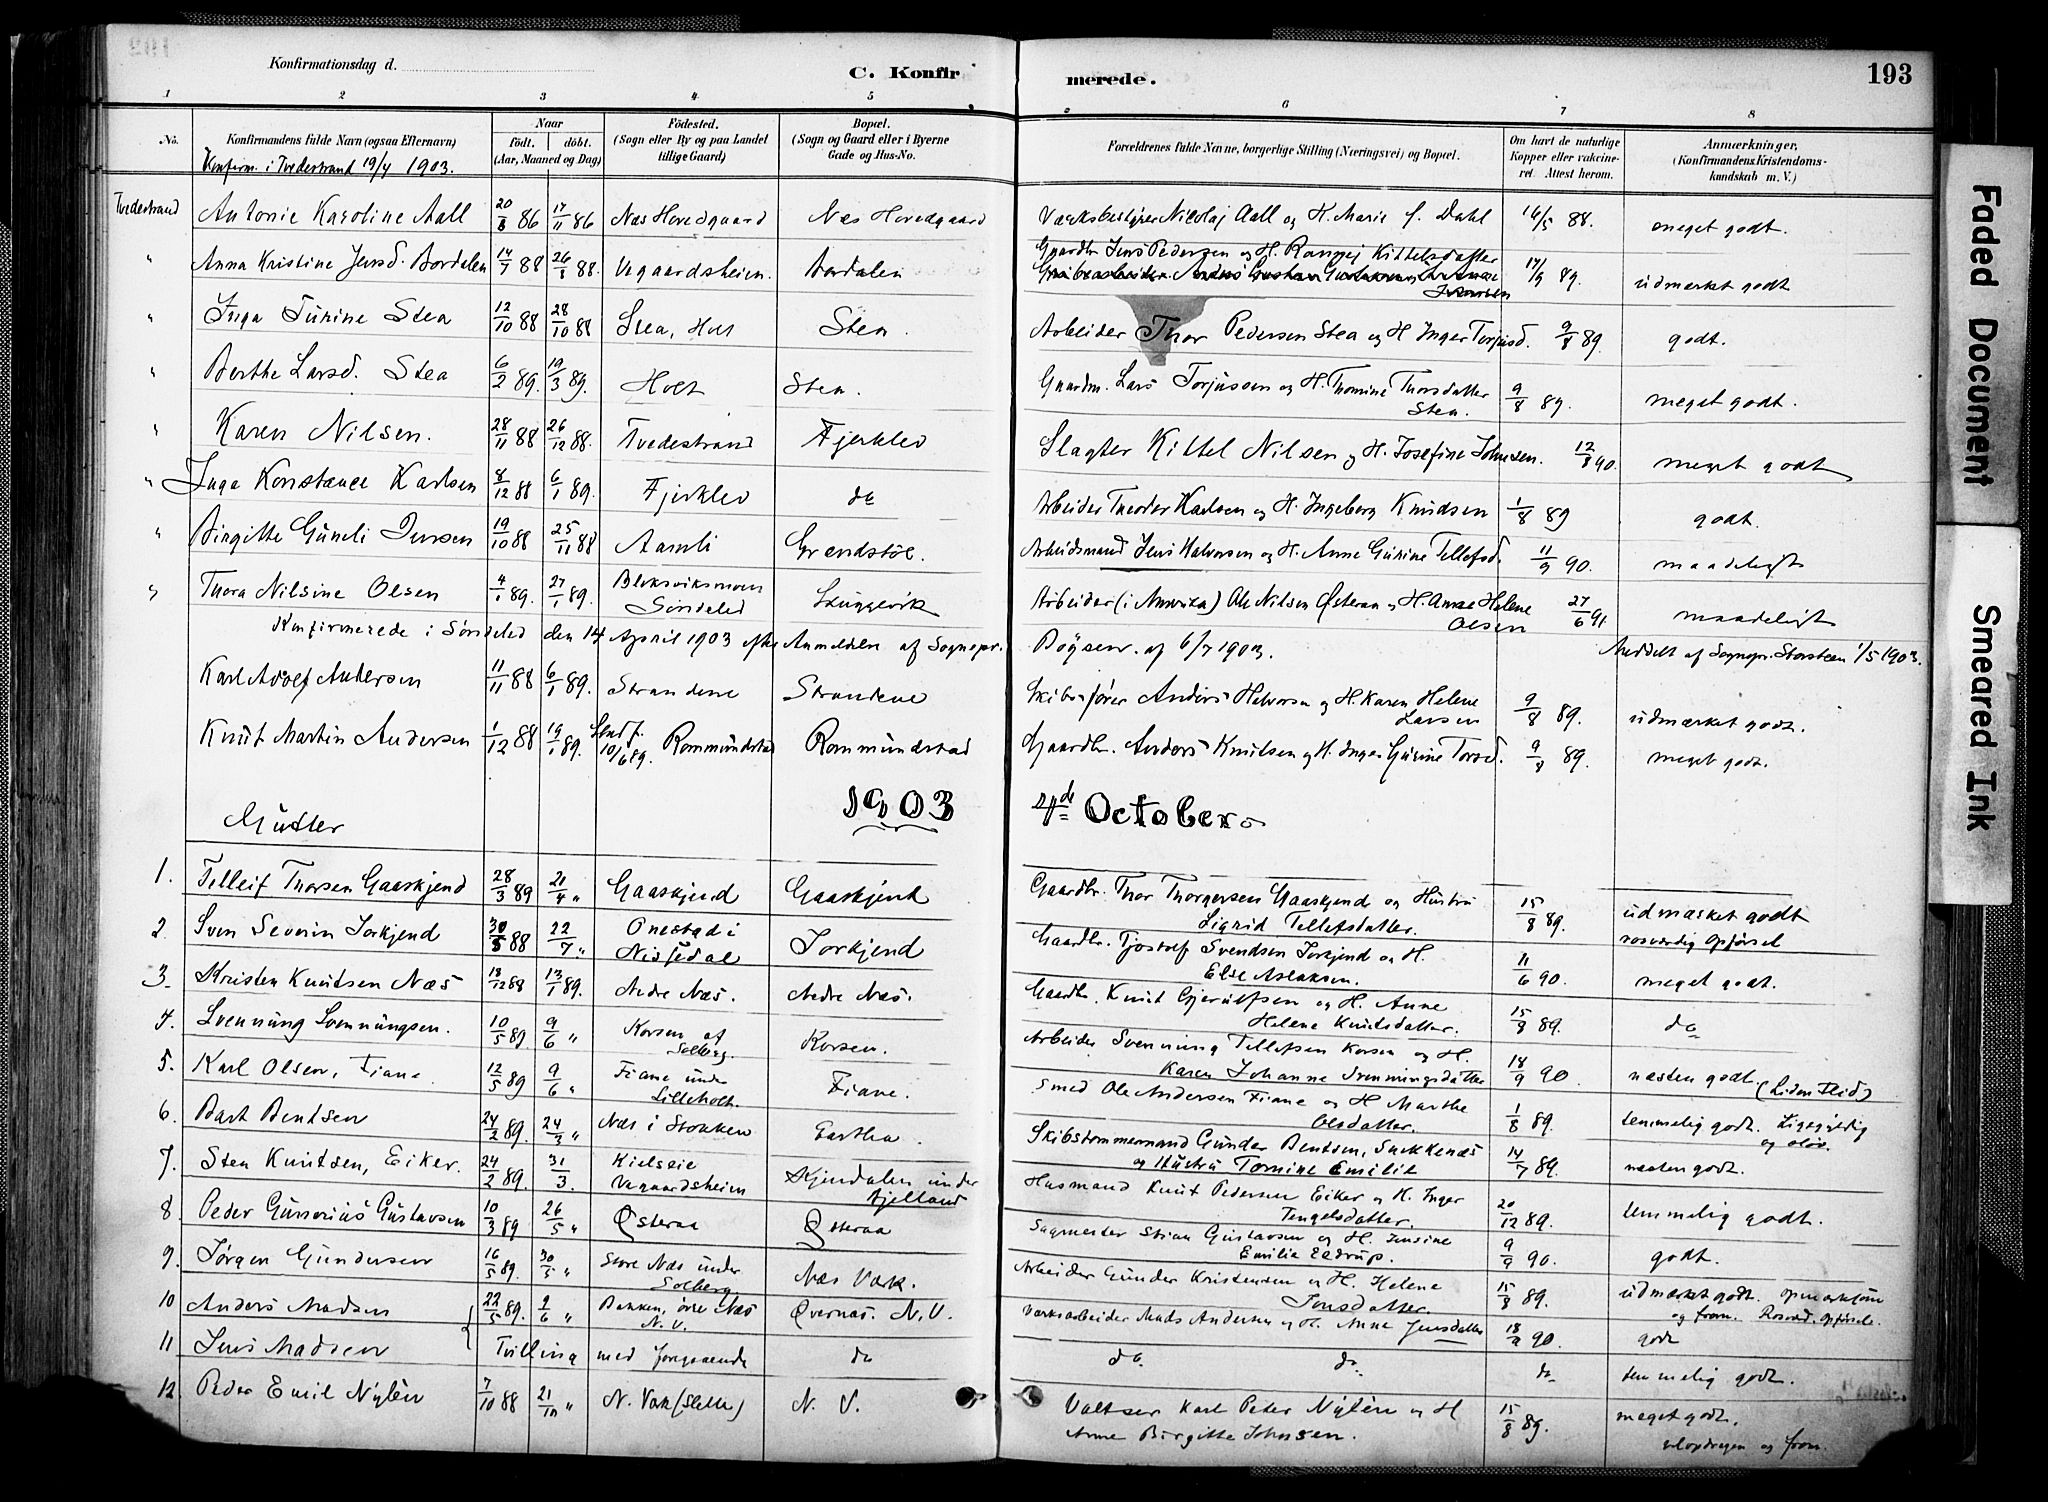 Konfirmationsdag d.
C. Konfirmerede.
193
1 2 3 4 5 6 7 8
No.
Konfirmandens fulde Navn (ogsaa Efternavn)
Naar
født. døbt.
(Aar, Maaned og Dag)
Fødested.
(Sogn eller By og paa Landet
tillige Gaard)
Bopæl.
(Sogn og Gaard eller i Byerne
Gade og Hus-No.
Forældrenes fulde Navne, borgerlige Stilling (Næringsvei) og Bopæl.
Om havt de naturlige
Kopper eller vakcine-
ret. Attest herom.
Anmærkninger,
(Konfirmandens Kristendoms-
kundskab m. V.)
Konfirm. i Tvedestrand 19/4 1903.
Tvedestrand Antonie Karoline Aall 20/8 86 17/11 86 Næs Hovedgaard Næs Hovedgaard Værksbestyrer Nikolaj Aall og H. Marie f. Dahl 16/5 88. meget godt.
" Anna Kristine Jensd. Aasdalen 14/7 88 26/8 88. Vegaardsheien. Aasdalen Gaardbr. Jens Pedersen og H. Kittelsdatter 17/9 89. udmærket godt
" Inga Turine Stea 12/10 88 28/10 88 Stea, Holt Stea. Arbeider Thor Pedersen Stea og H. Inger Torjusd. 9/8 89. godt.
" Berthe Larsd. Stea 6/2 89. 19/3 89. Holt Stea. Gaardm. Lars Torjussen og H. Thomine Thorsdatter Stea. 9/8 89. meget godt.
" Karen Nilsen. 28/11 88 26/12 88. Tvedestrand Fjerklev Slagter Kittel Nilsen og H. Josefine Johnsen. 12/8 90. meget godt
" Inga Konstance Karlsen 8/12 88 6/1 89. Fjerklev do Arbeider Theodor Karlsen og H. Ingeborg Knudsen 1/8 89 godt.
" Birgitte Guneli Jensen 19/10 88 25/11 88 Aamli Grændstøl. Arbeidsmand Jens Halvorsen og H. Anne Gurine Tellefsd. 11/9 90. maadeligt
" Thora Nilsine Olsen 4/1 89. 27/1 89. Søndeled Arbeider (i Amerika) Ole Nilsen Østeraa og H. Anne Helene Olsen 27/6 91. maadeligt
Konfirmerede i Søndeled den 14 April 1903 efter Anmeldelse af Sognepr. Bøysen. af 6/7 1903. Meddelt af Sognepr. Storsteen 1/5 1903.
Karl Adolf Andersen 11/11 88 6/1 89. Strandene Strandene Skibsfører Anders Halvorsen og H. Karen Helene Larsen 9/8 89. udmærket godt.
Knut Martin Andersen 1/12 88 19/1 89. Stadf. 10/6 89. Rommundstad Rommundstad Gaardbr. Anders Knutsen og H. Inger Gurine Torsd. 9/8 89. meget godt.
Gutter 1903 4de October
1. Telleif Thorsen Gaaskjend 28/3 89 21/4 " Gaaskjend Gaaskjend Gaardbr. Thor Thorgersen Gaaskjend og Hustru Sigrid Tellefsdatter. 15/8 89. udmærket godt rosværdig Opførsel
2. Sven Severin Jorkjend 30/5 88 22/7 " Onestad i Nissedal Jorkjend Gaardbr. Tjostolf Svendsen Jorkjend og H. Else Aslaksen. 11/6 90. meget godt.
3. Kristen Knutsen Næs 18/12 88 13/1 89. Nedre Næs. Nedre Næs. Gaardbr. Knut Gjerulfsen og H. Anne Helene Knutsdatter. 15/8 89. do
4. Svennung Svennungsen. 10/5 89 9/6 " Korsen af Solberg. Korsen. Arbeider Svennung Tellefsen Korsen og H. Karen Johanne Svenningsdatter 18/9 90. næsten godt. (Liden Flid)
5. Karl Olsen, Fiane. 12/5 89 9/6 " Fiane under Lilleholt. Fiane. Smed Ole Andersen Fiane og H Marthe Olsdatter. 1/8 89. temmelig godt. Ligegyldig
6. Bart Bentsen 24/2 89. 24/3 " Næs i Stokken Eartha. Skibstømmermand Gunder Bentsen, og Hustru Tomine Emilie 14/7 89. næsten godt.
7. Sten Knutsen, Eiker. 24/2 89. 31/3. Vegaardsheien Kjendalen under Fjelland Husmand Knut Pedersen Eiker og H. Inger Tengelsdatter. 20/12 89. temmelig godt.
8. Peder Gunerius Gustavsen 10/3 89 26/5 " Østeraa Østeraa Sagmester Stian Gustavsen og H. Jensine Emilie 9/9 90. godt.
9. Jørgen Gundersen 16/5 89. 30/5 " Store Næs under Solberg. Næs Værk. Arbeider Gunder Kristensen og H. Helene Jonsdatter. 15/8 89. udmærket godt. opmærksom og from. Rosværd. Opførsel.
10 Anders Madsen 22/5 89. 9/6 " Bakken, øvre Næs N. V. Øvernæs. N. V. Værksarbeider Mads Andersen og H. Anne Jensdatter 18/9 90. godt
11 Jens Madsen Tvilling med foregaaende do do. do. do temmelig godt.
12. Peder Emil Nylén 7/10 88 21/10 " N. Værk (Sletta) N. V. Valtser Karl Peter Nylén og H Anne Birgitte Johnsen. 15/8 89. meget godt. velopdragen og from.
Faded Document
Smeared Ink